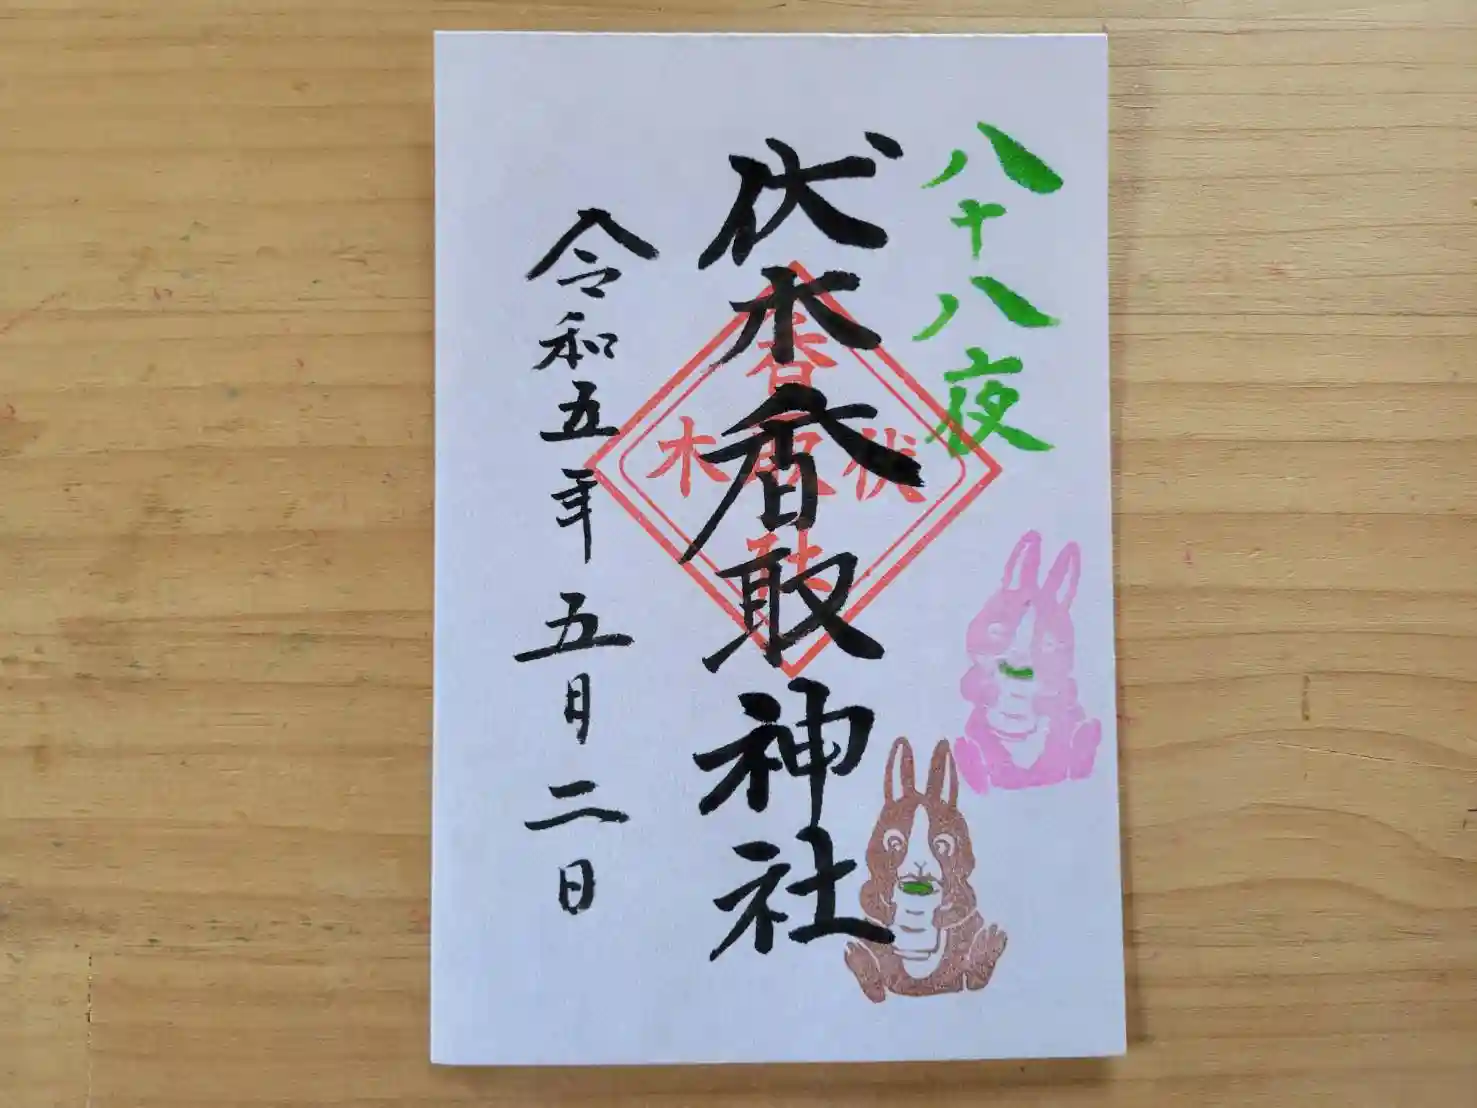 八十八夜
伏木香取神社
令和五年五月二日
香
伏取木
社